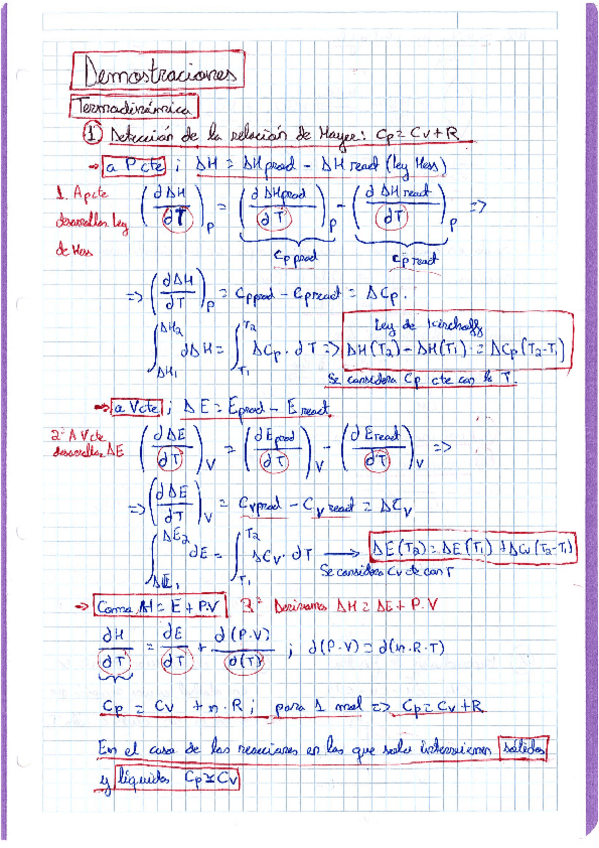 Demostraciones
Termodinámica
① Deducción de la relación de Mayer: Cp = Cv + R
→ a P cte ; ΔH = ΔHprod - ΔH react (ley Hess)
1. A pcte desarrollar Ley de Hess
(∂ΔH/∂T)p = (∂ΔHprod/∂T)p - (∂ΔH react/∂T)p =>
Cp prod Cp react
=> (∂ΔH/∂T)p = Cpprod - Cpreact = ΔCp.
Ley de Kirchoff
∫ΔH1^ΔH2 dΔH = ∫T1^T2 ΔCp · dT => ΔH(T2) - ΔH(T1) = ΔCp(T2-T1)
Se considera Cp cte con la T.
→ a Vcte ; ΔE = Eprod - E react
2º A Vcte desarrollar ΔE
(∂ΔE/∂T)V = (∂Eprod/∂T)V - (∂Ereact/∂T)V =>
=> (∂ΔE/∂T)V = Cvprod - Cv react = ΔCv
∫ΔE1^ΔE2 dE = ∫T1^T2 ΔCv · dT → ΔE(T2) = ΔE(T1) + ΔCv(T2-T1)
Se considera Cv cte con T
→ Como ΔH = E + P.V 3º Derivamos ΔH = ΔE + P.V
∂H/∂T = ∂E/∂T + ∂(P.V)/∂(T) ; ∂(P.V) = ∂(n.R.T)
Cp = Cv + n.R ; para 1 mol => Cp = Cv + R
En el caso de las reacciones en las que solo intervienen sólidos
y líquidos Cp ≅ Cv